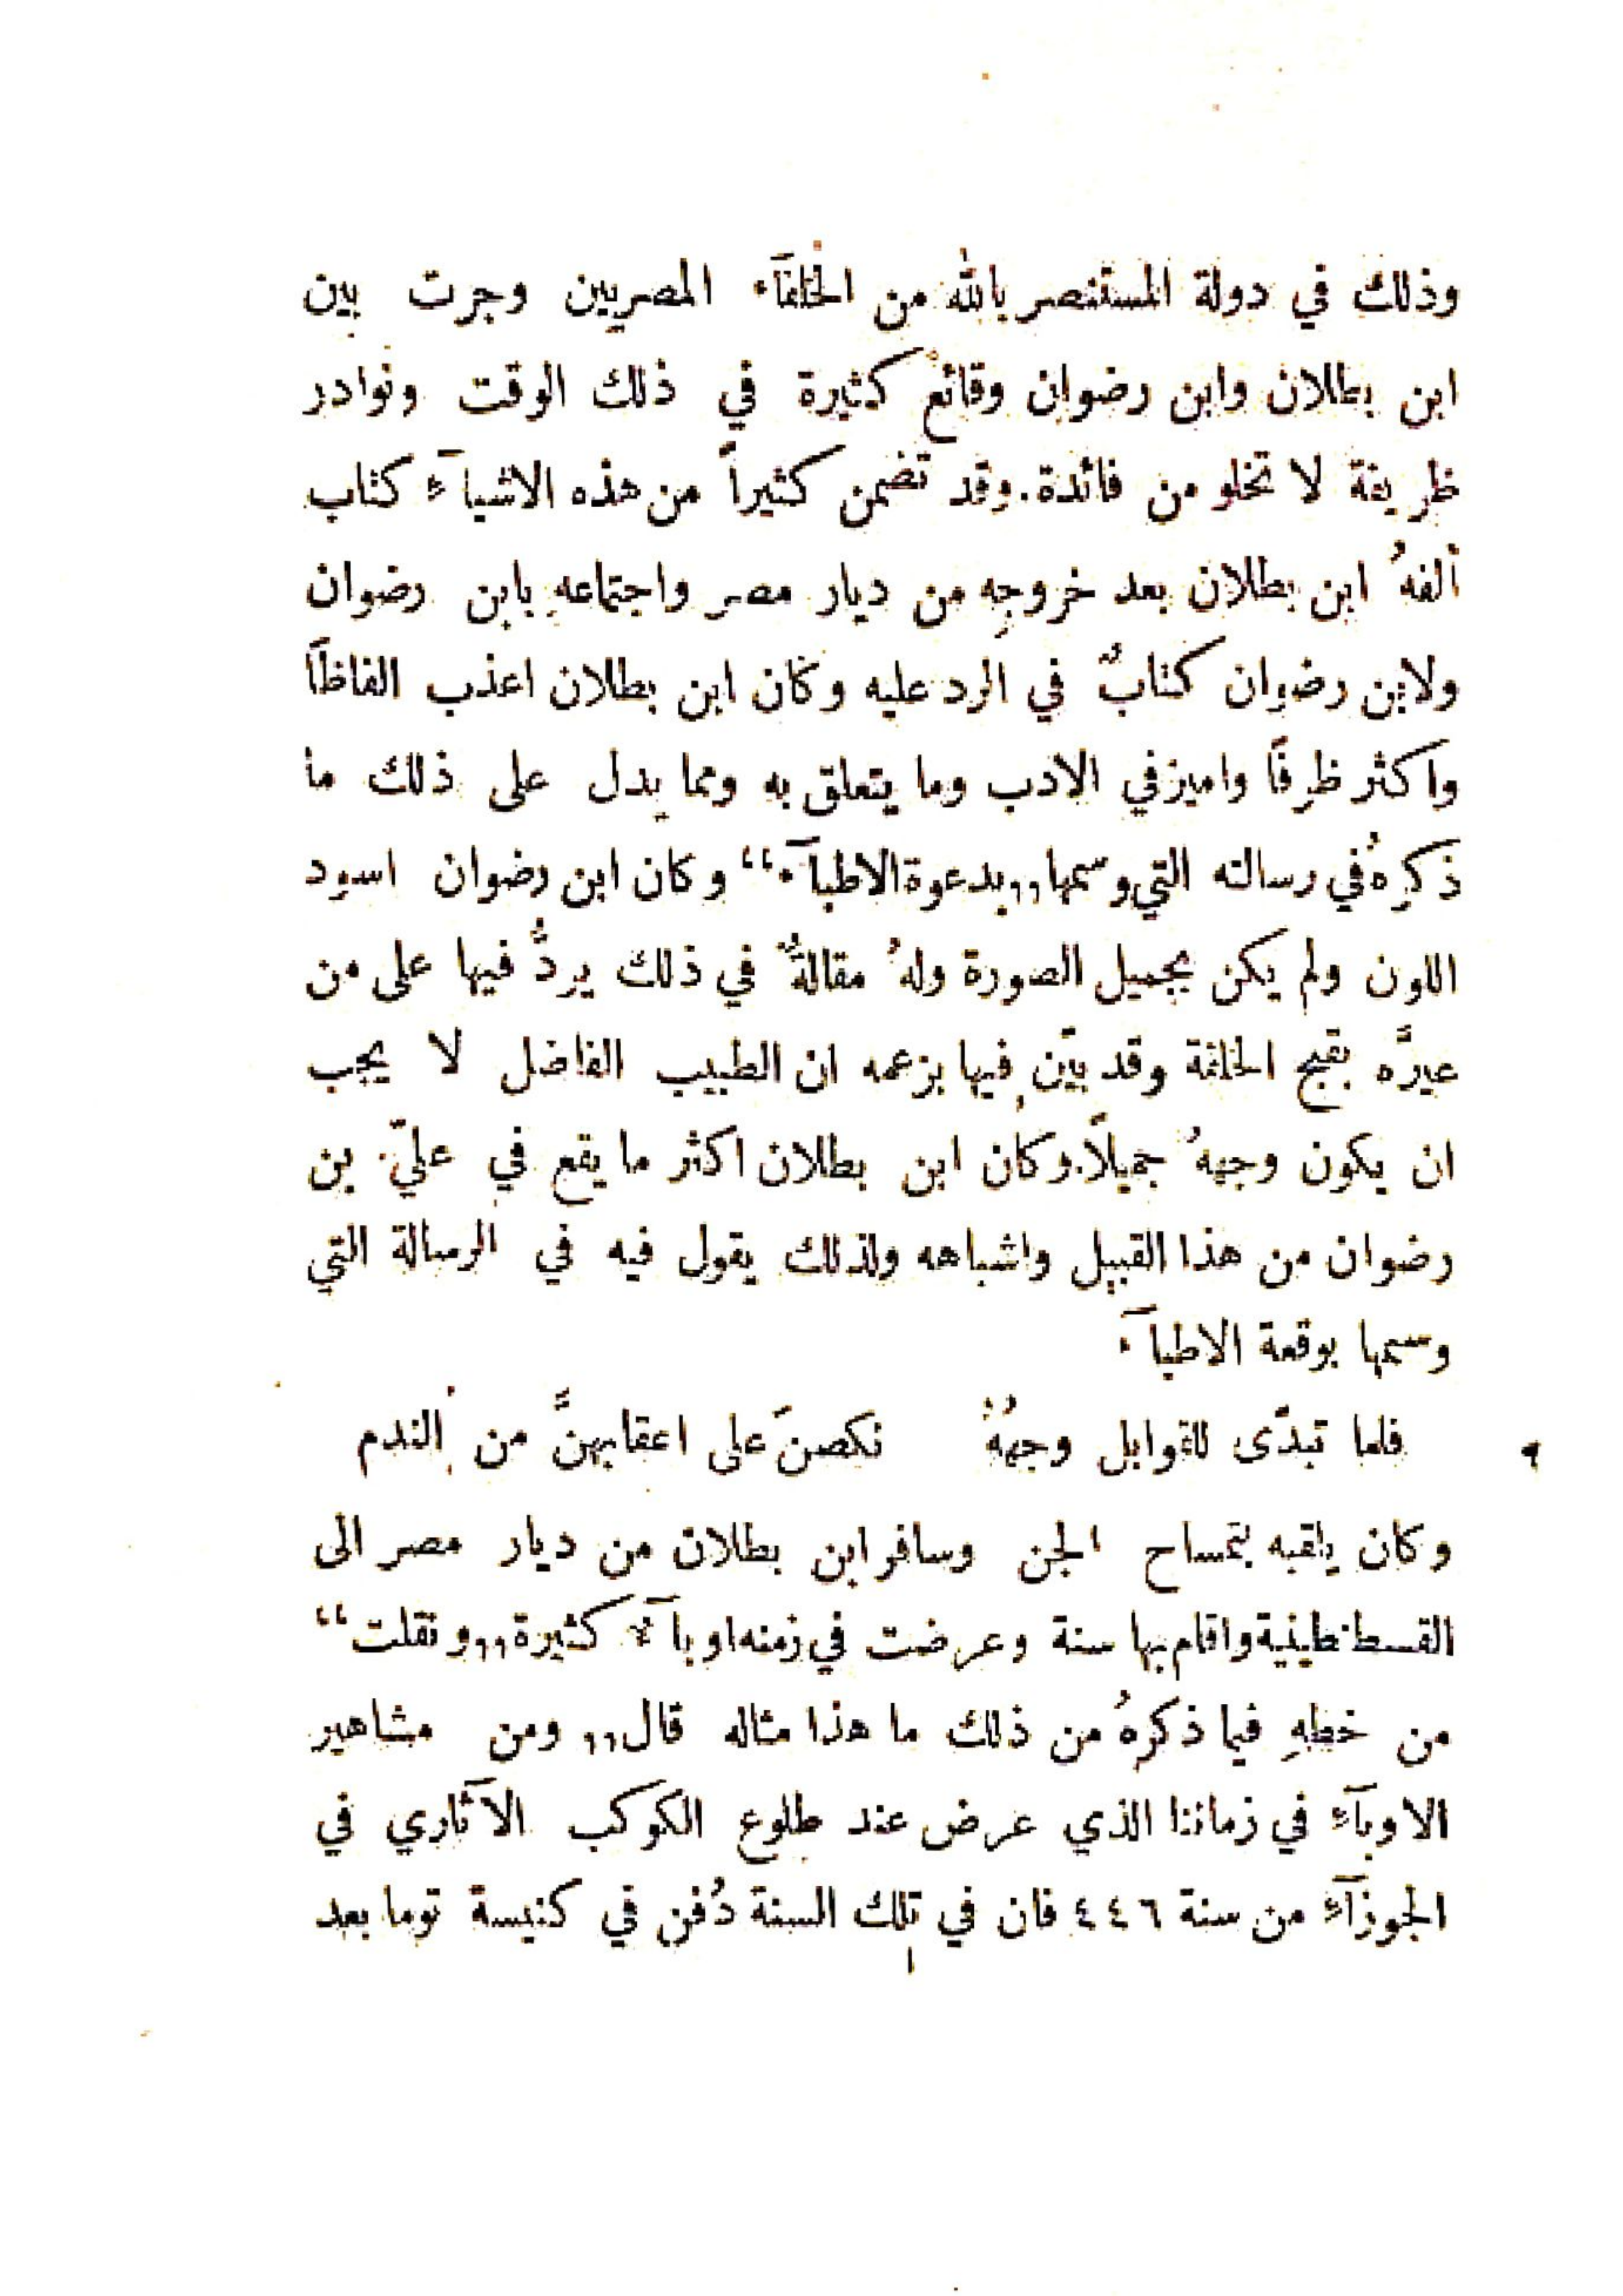 وذلك في دولة المستنصر بالله من الخلفآء المصريين وجرت بين
ابن بطلان وابن رضوان وقائع كثيرة في ذلك الوقت ونوادر
ظريفة لا تخلو من فائدة. وقد تضمن كثيراً من هذه الاشيآء كتاب
ألفهُ ابن بطلان بعد خروجهِ من ديار مصر واجتماعهِ بابن رضوان
ولابن رضوان كتابٌ في الرد عليه وكان ابن بطلان اعذب الفاظاً
واكثر ظرفاً واميز في الادب وما يتعلق به ومما يدل على ذلك ما
ذكرهُ في رسالته التي وسمها ,,بدعوة الاطبآء“ وكان ابن رضوان اسود
اللون ولم يكن بجميل الصورة ولهُ مقالةٌ في ذلك يردُّ فيها على من
عيرَّه بقبح الخلقة وقد بيّن فيها بزعمه ان الطبيب الفاضل لا يجب
ان يكون وجههُ جميلاً. وكان ابن بطلان اكثر ما يقع في عليّ بن
رضوان من هذا القبيل واشباهه ولذلك يقول فيه في الرسالة التي
وسمها بوقعة الاطبآء
فلما تبدّى للقوابل وجههُ نكصنَ على اعقابهنَّ من الندم
وكان يلقبه بتمساح الجن وسافر ابن بطلان من ديار مصر الى
القسطنطينية واقام بها سنة وعرضت في زمنه اوبآء كثيرة ,,ونقلت“
من خطهِ فيما ذكرهُ من ذلك ما هذا مثاله قال ,,ومن مشاهير
الاوبآء في زماننا الذي عرض عند طلوع الكوكب الآثاري في
الجوزآء من سنة ٤٤٦ فان في تلك السنة دُفن في كنيسة توما بعد